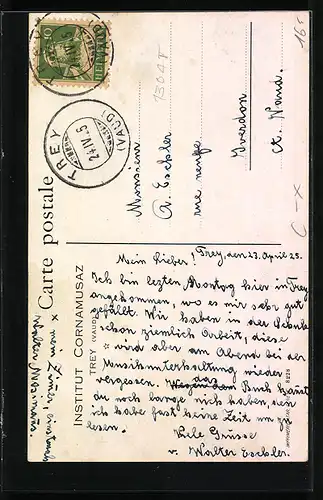 Carte postale
INSTITUT CORNAMUSAZ
TREY (VAUD)
TREY
24 IV 25
(VAUD)
10
HELVETIA
Monsieur
A. Eschler
rue
Yverdon
ct. Vaud.
Mein Lieber! Trey, den 23. April 25.
Ich bin lezten Montag hier in Trey
angekommen, wo es mir sehr gut
gefällt. Wir haben in der Schule
schon ziemlich Arbeit, diese
wird aber am Abend bei der
Musikunterhaltung wieder
vergessen. das Buch
du noch lange nich haben, den
ich habe fast keine Zeit um zu
lesen.
Viele Grüsse
v. Walter Eschler.
x mein Zimmer
13048
16.-
C - X
8228